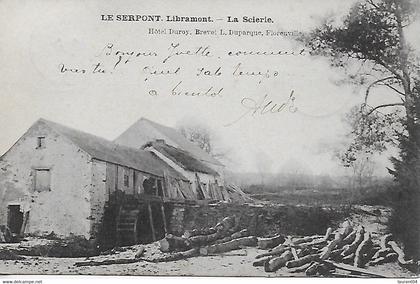 LE SERPONT. Libramont. - La Scierie.
Hôtel Duroy, Brevet L. Duparque, Florenville.
Bonjour Yvette, comment
vas tu? Quel sale temps
a bientôt